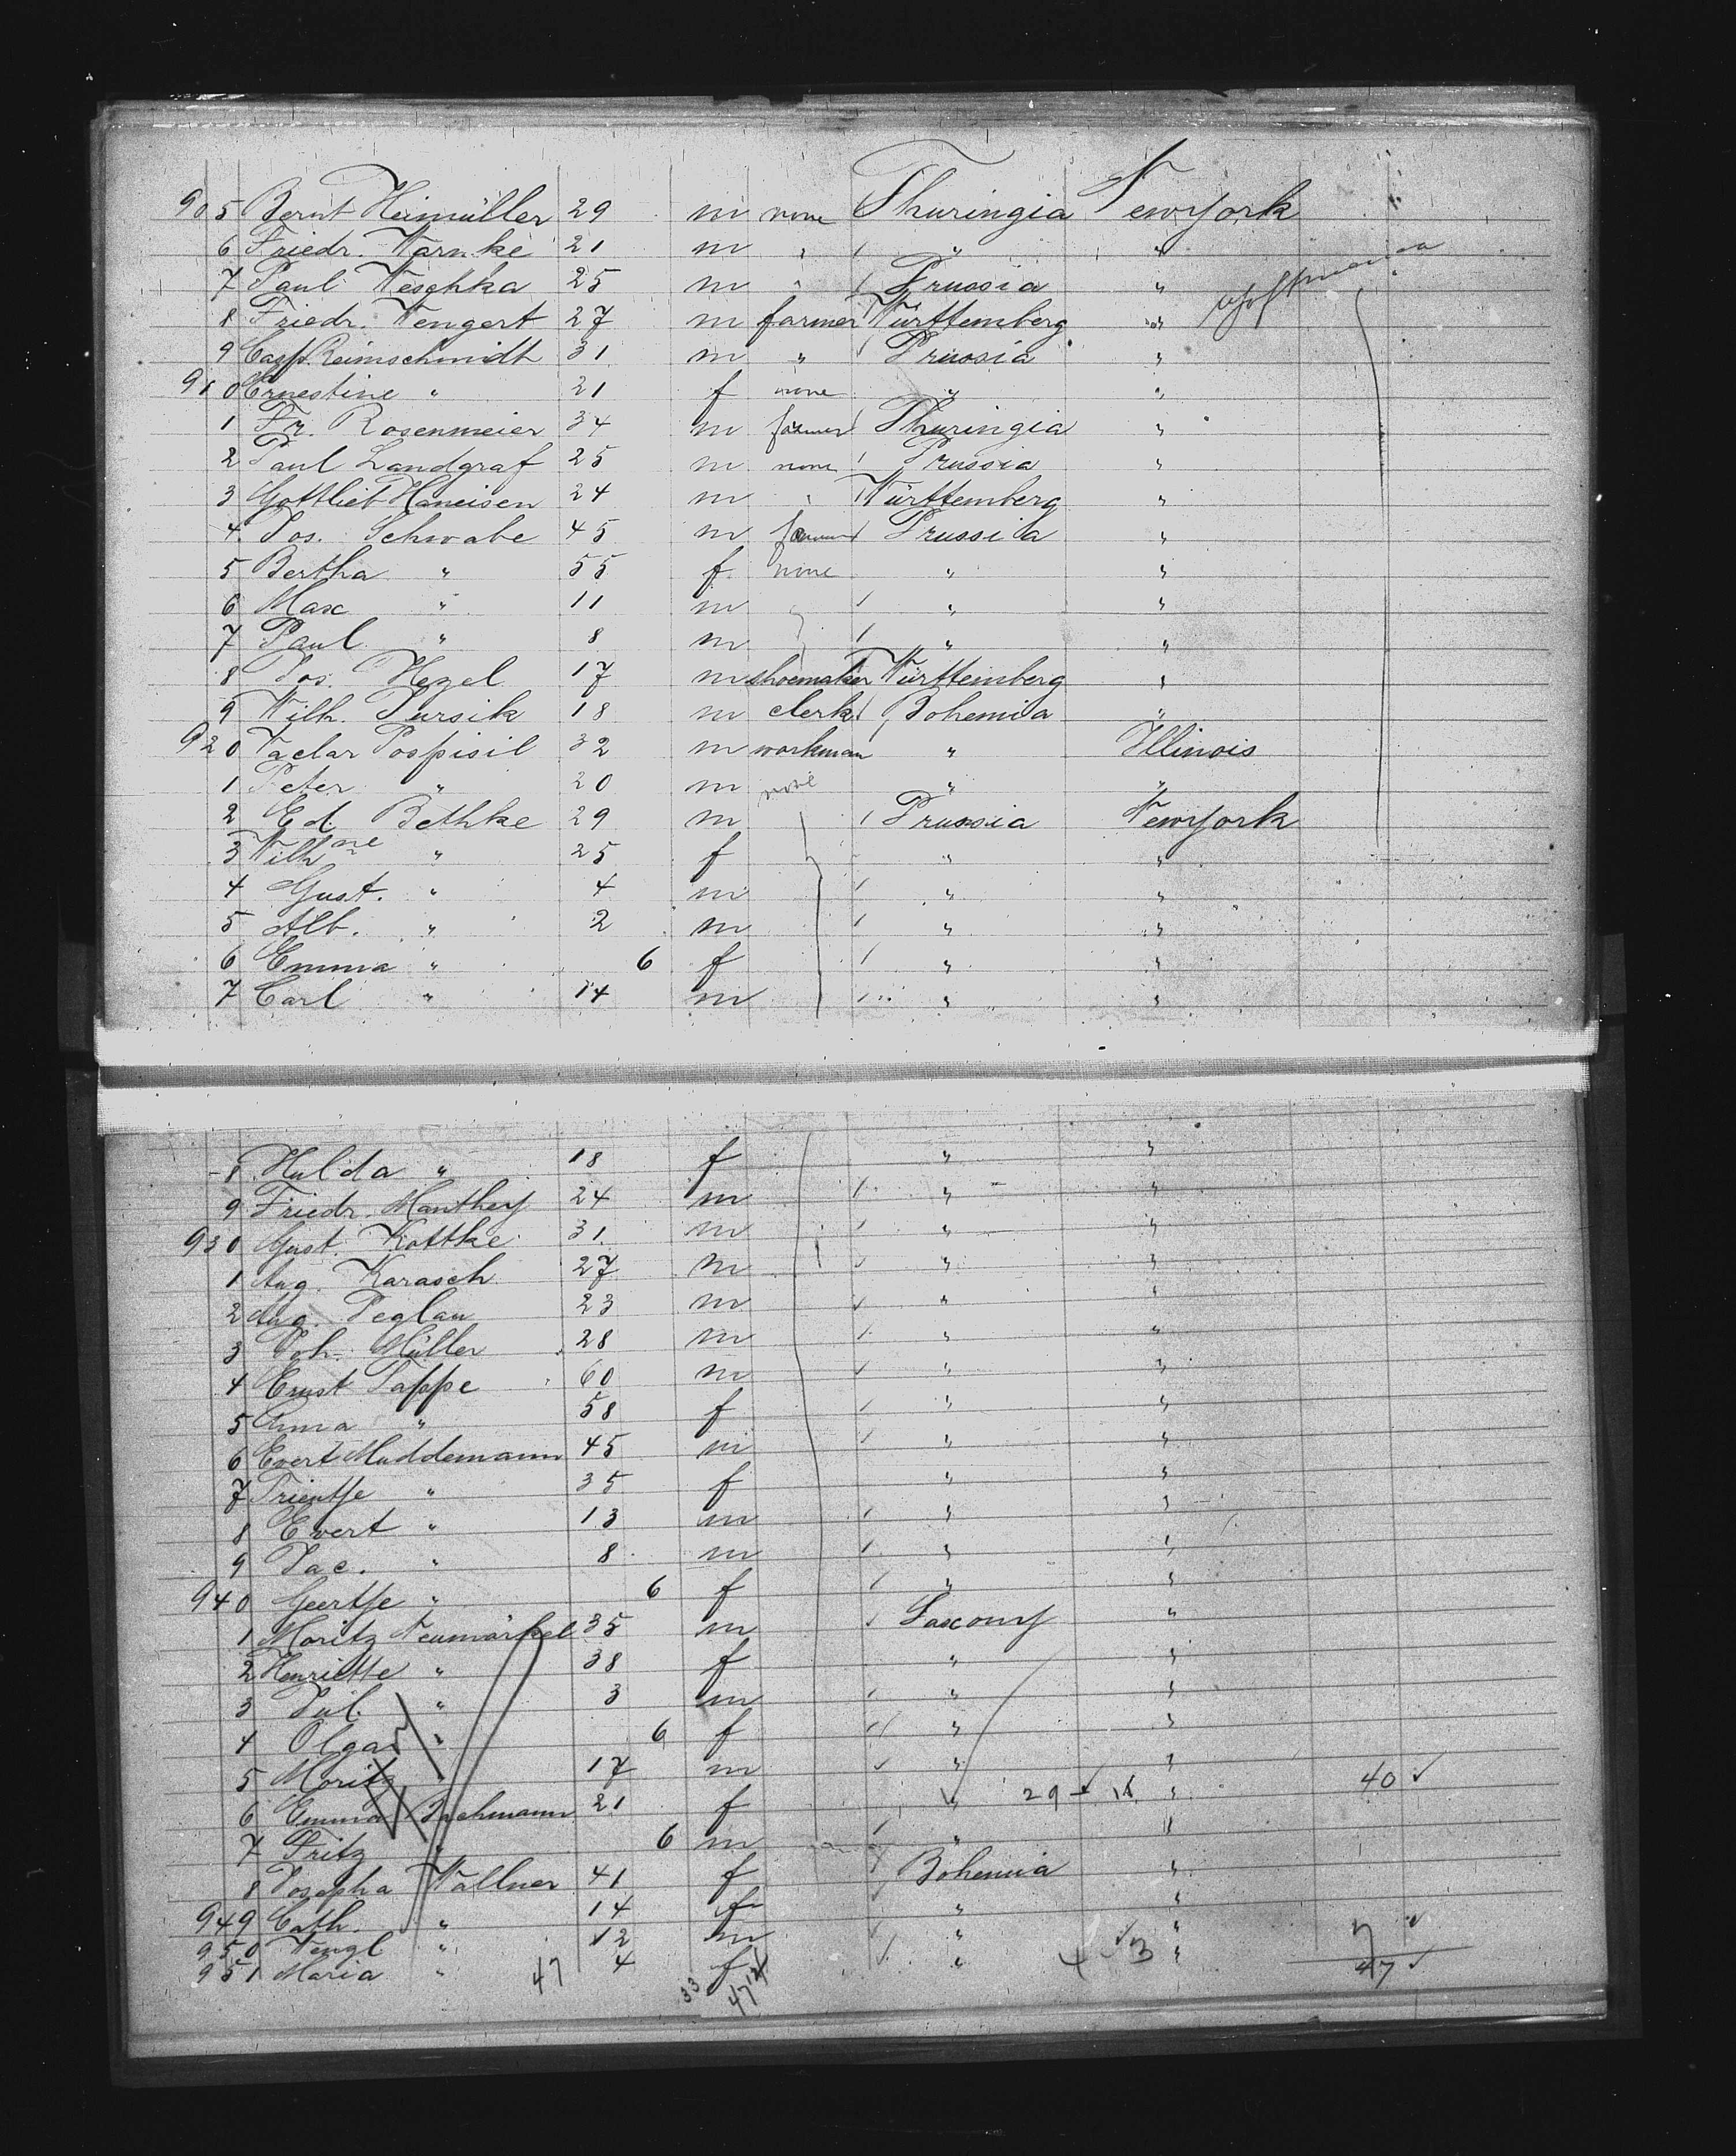 905 Bernt Heimüller 29 m none Thuringia Newyork
6 Friedr. Warnke 21 m " " "
7 Paul Weschka 25 m " Prussia "
8 Friedr. Wengert 27 m farmer Württemberg "
9 Casp. Reimschmidt 31 m " Prussia "
910 Ernestine " 21 f none " "
1 Fr. Rosenmeier 34 m farmer Thuringia "
2 Paul Landgraf 25 m none Prussia "
3 Gottlieb Haneisen 24 m " Württemberg "
4 Jos. Schwabe 45 m farmer Prussia "
5 Bertha " 55 f none " "
6 Max " 11 m " "
7 Paul " 8 m " "
8 Jos. Hezel 17 m shoemaker Württemberg "
9 Wilh. Pursik 18 m clerk Bohemia "
920 Vaclav Pospisil 32 m workman " Illinois
1 Peter " 20 m none " "
2 Ed. Bethke 29 m Prussia Newyork
3 Wilhne " 25 f " "
4 Gust. " 4 m " "
5 Alb. " 2 m " "
6 Emma " 6 f " "
7 Carl " 14 m " "
8 Hulda " 18 f " "
9 Friedr. Manthey 24 m " "
930 Gust. Kottke 31 m " "
1 Aug. Karasch 27 m " "
2 Aug. Peglau 23 m " "
3 Joh. Müller 28 m " "
4 Ernst Tappe 60 m " "
5 Anna " 58 f " "
6 Evert Muddemann 45 m " "
7 Trientje " 35 f " "
8 Evert " 13 m " "
9 Jac. " 8 m " "
940 Geertje " 6 f " "
1 Moritz Neumärkel 35 m Saxony "
2 Henriette " 38 f " "
3 Jul. " 3 m " "
4 Olga " 6 f " "
5 Moritz " 17 m " "
6 Emma Bachmann 21 f " 29 " 40 ✓
7 Fritz " 6 m " "
8 Josepha Wallner 41 f Bohemia "
949 Cath. " 14 f " "
950 Wengl " 12 m " " 7
951 Maria " 47 4 f " 4 3 " 47 ✓
33 47